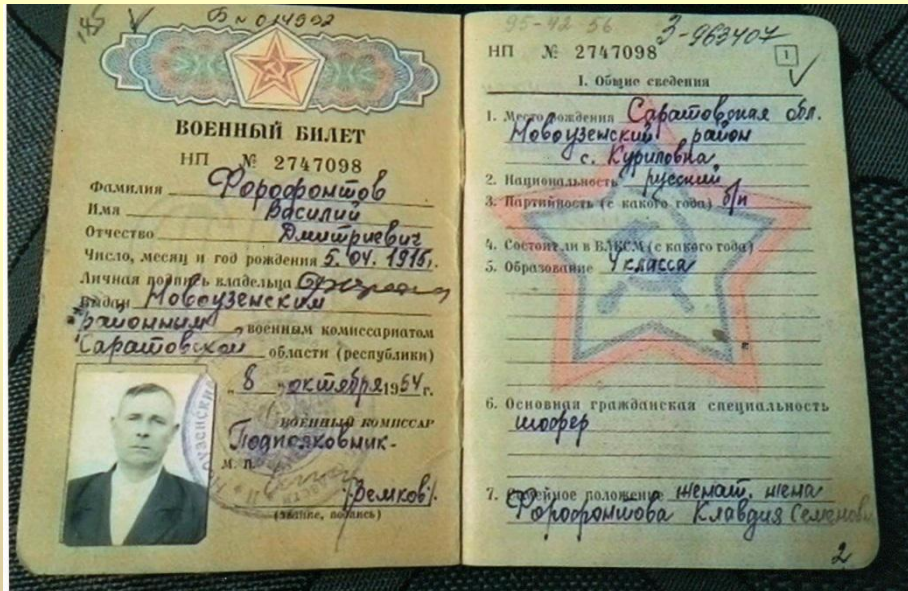 Б № 014902
ВОЕННЫЙ БИЛЕТ
НП № 2747098
Фамилия Форофонтов
Имя Василий
Отчество Дмитриевич
Число, месяц и год рождения 5. 04. 1915г.
Личная подпись владельца
Выдан Новоузенским
районным военным комиссариатом
Саратовской области (республики)
„8 „ октября 1954 г.
ВОЕННЫЙ КОМИССАР
Подполковник-
М. П.
/Земков/.
(звание, подпись)
95-42 56
3-963407
НП № 2747098
1
I. Общие сведения
1. Место рождения Саратовская обл.
Новоузенский район
с. Куриловка
2. Национальность русский
3. Партийность (с какого года) б/п
4. Состоял ли в ВЛКСМ (с какого года)
5. Образование 4 класса
6. Основная гражданская специальность
шофер
7. Семейное положение женат. жена
Форофонтова Клавдия Семеновн
2